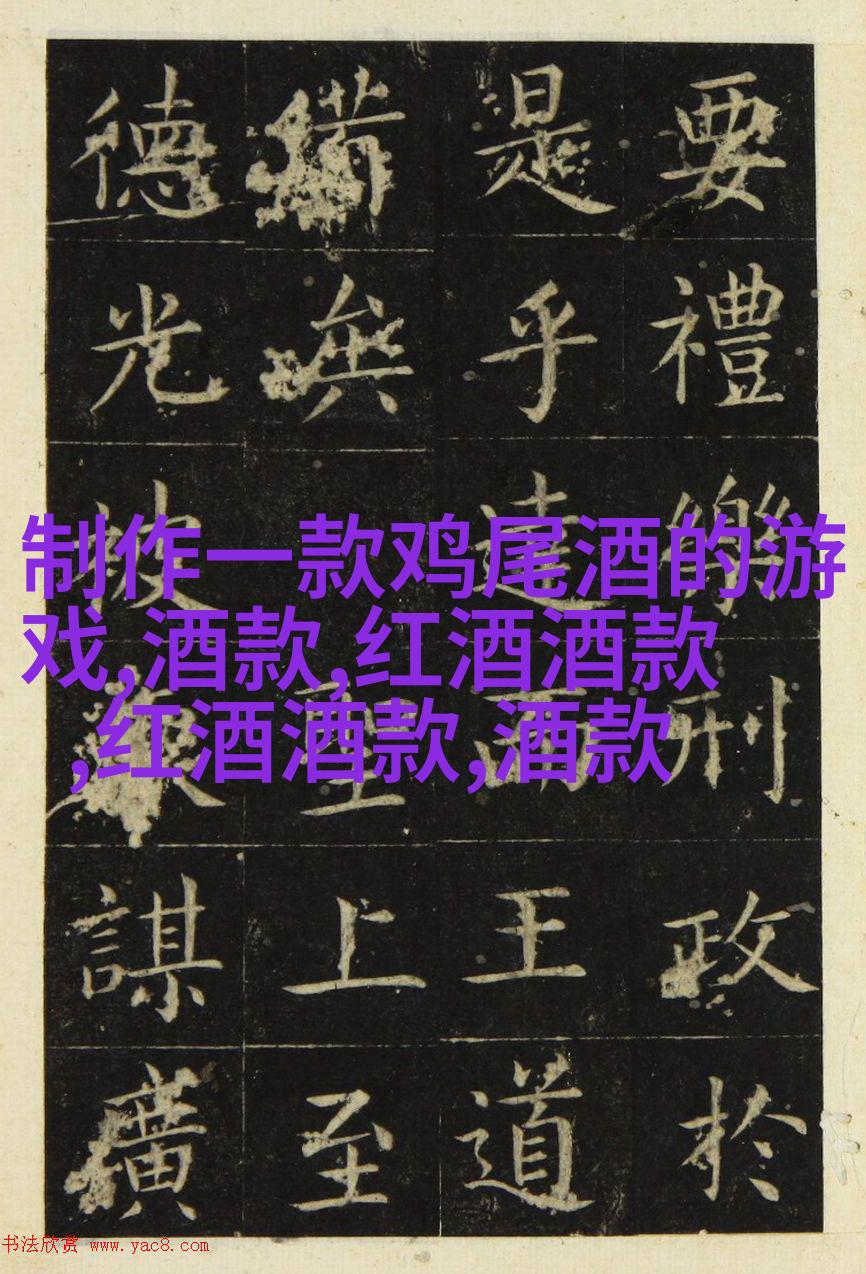 要禮樂刑政於
是乎達而王道
備 聖上至
德光被謀廣
制作一款鸡尾酒的游
戏,酒款,红酒酒款
,红酒酒款,酒款
书法欣赏 www.yac8.com